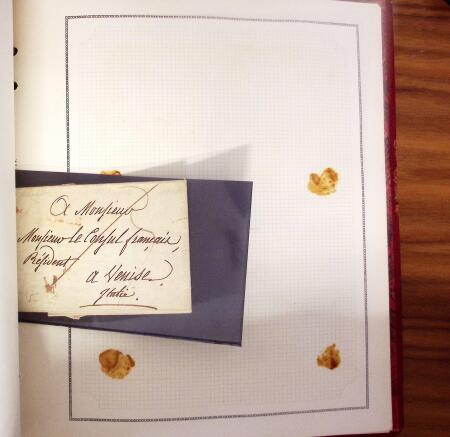 A Monsieur
Monsieur Le Consul français,
Résident
a Venise.
Italie.